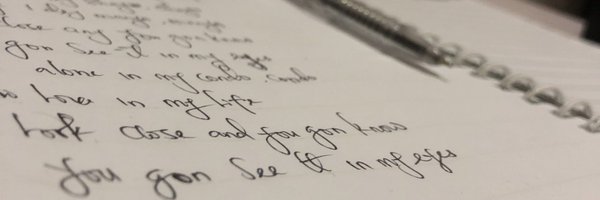 I Dey
Close and you gon know
gon See it in my eyes
alone in my condo condo
in my life
Look Close and you gon know
You gon See it in my eyes